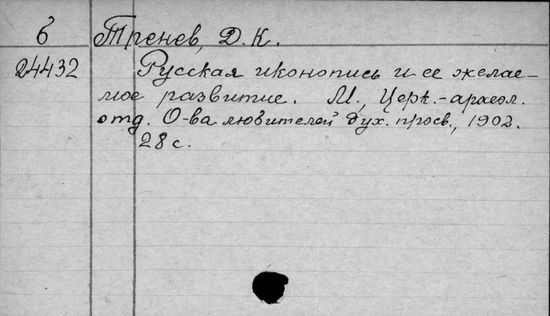 б Тренев, Д. К.
24432 Русская иконопись и ее желае-
мое развитие. М., Церк.-археол.
отд. О-ва любителей дух. просв., 1902.
28 с.